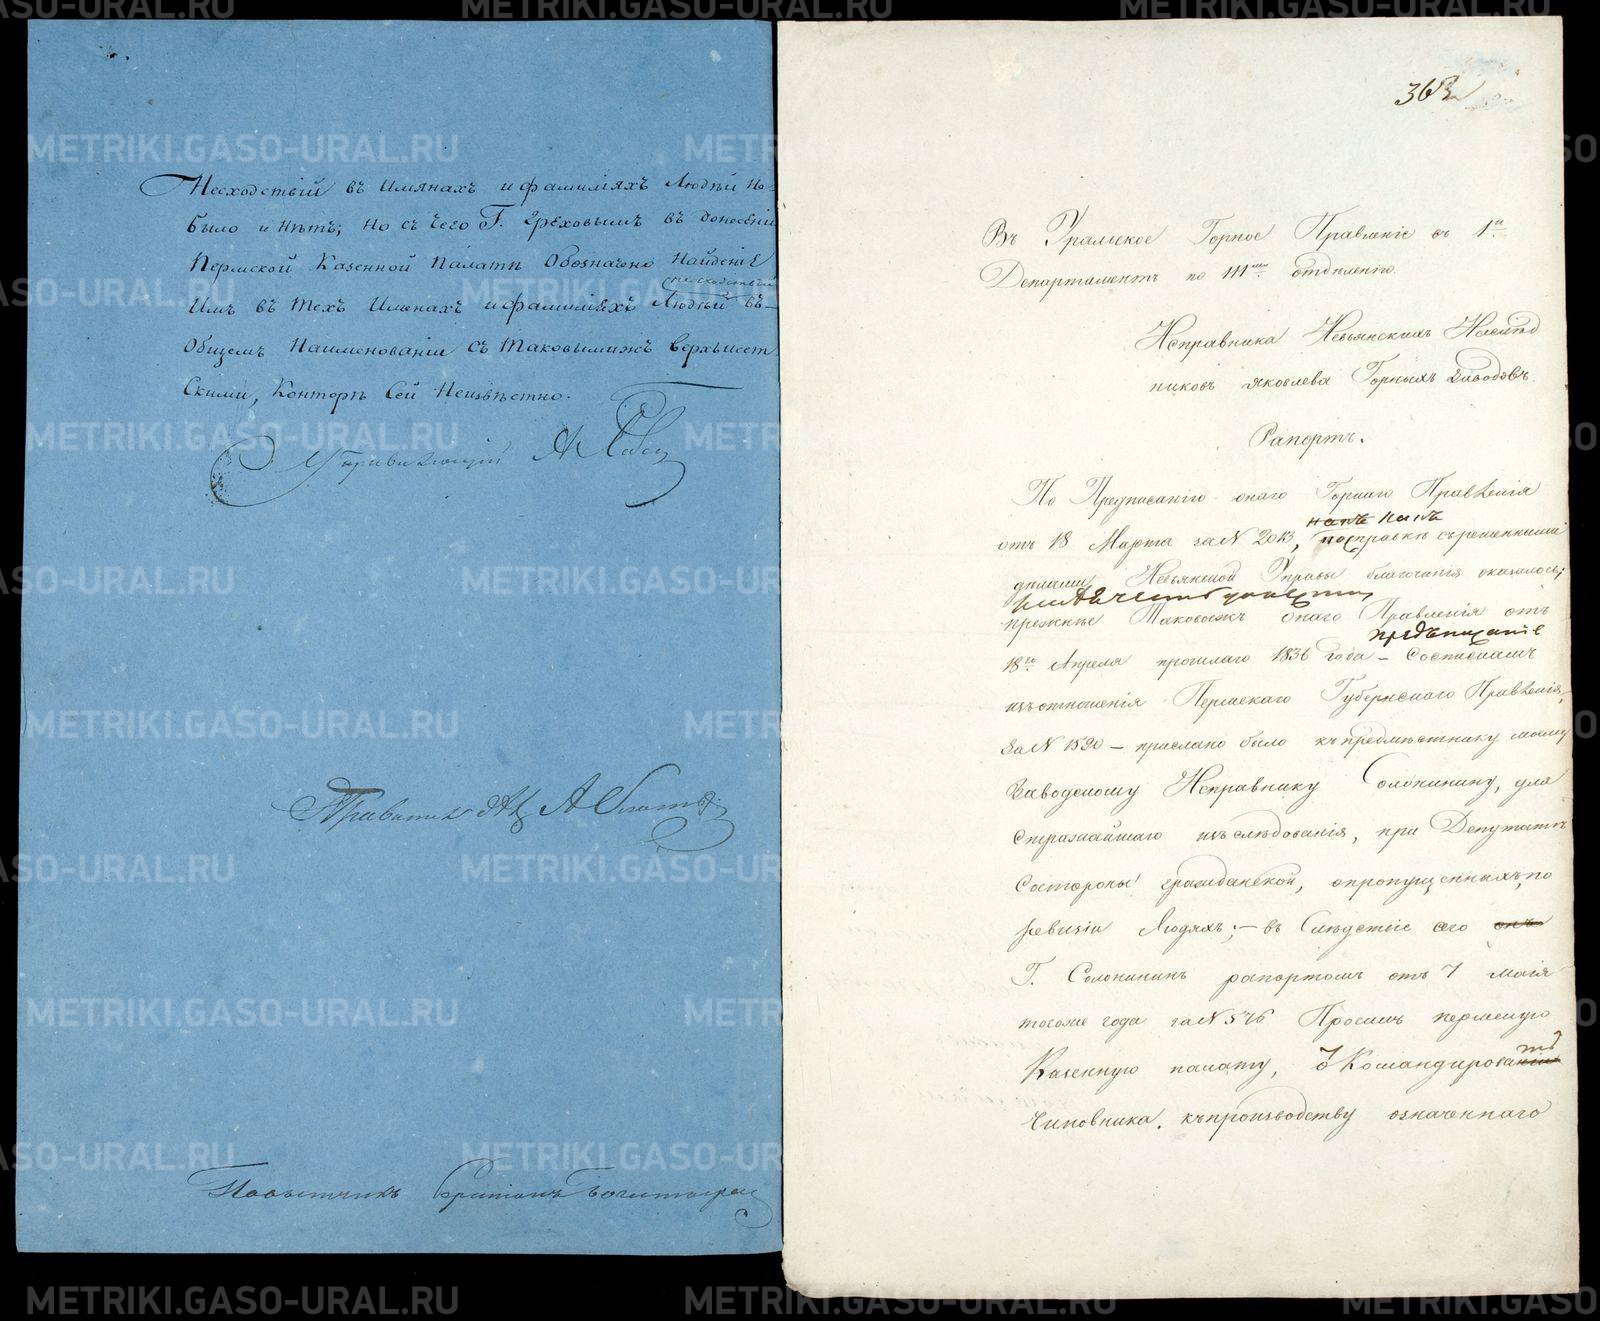 Несходствій въ Имянахъ и фамиліяхъ Людѣй не
было и нѣтъ; но съ чего Г. Греховымъ въ донесеніи
Пермской Казенной Палатѣ Обозначено Найденіе
несходствій
Имъ въ тѣхъ Именахъ и фамиліяхъ Людѣй въ
Общемъ Наименованіи съ таковымижъ Верхъисет
Скими, Конторѣ Сей Неизвѣстно.
Управляющій
Повытчикъ
363
Въ Уральское Горное Правленіе въ 1й
Департаментъ по III му отдѣленію.
Исправника Невьянскихъ Наслѣд
никовъ Яковлева Горныхъ Заводовъ
Рапортъ.
По Предписанію онаго Горнаго Правленія
отъ 18 Марта за N 2013, по справкѣ съ решенными
дѣлами Невьянской Управы благочинія оказалось;
прежнѣе таковоежъ онаго Правленія отъ
предъписаніе
18го Апреля прошлаго 1836 года – Соспискомъ
изъ отношенія Пермскаго Губернскаго Правленія,
за N 1590 – прислано было къ предмѣстнику моему
Заводскому Исправнику Солонинину, для
Строжайшаго изъслѣдованія, при Депутатѣ
Состороны гражданской, опропущенныхъ по
ревизіи Людяхъ; – въ Слѣдствіе сего онъ
Г. Солонининъ рапортомъ отъ 7 маія
тогоже года за N 576 Просилъ пермскую
Казенную палату, о Командированіи
Чиновника, къ производству означеннаго
METRIKI.GASO-URAL.RU